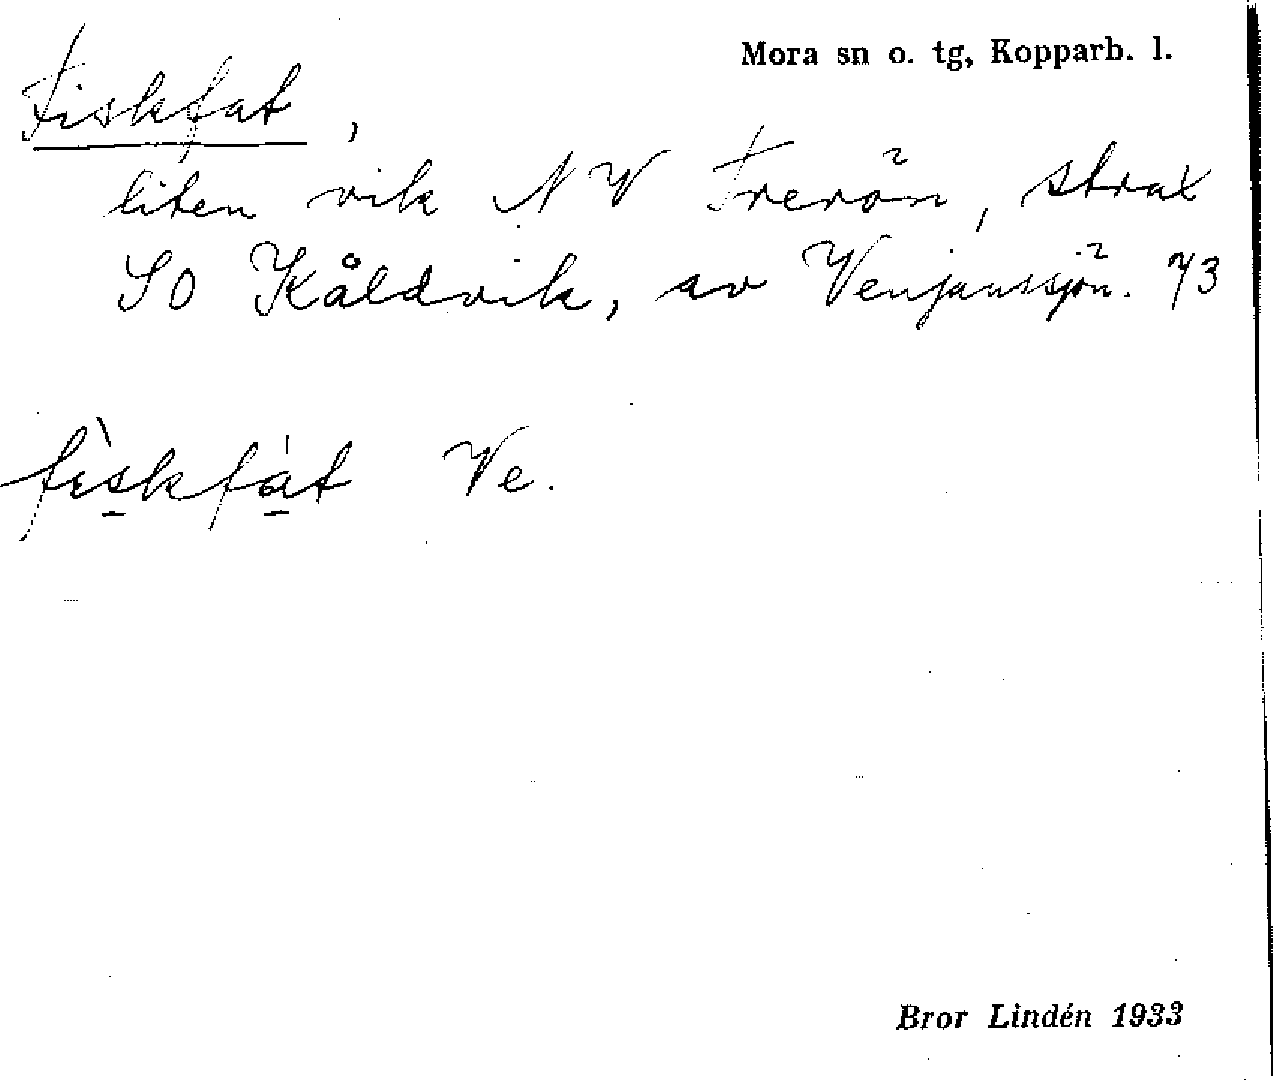 Mora sn o. tg, Kopparb. l.
Fiskfat,
liten vik NV Frerön, strax
SO Kåldvik, av Venjanssjön. 73
fìskfát Ve.
Bror Lindén 1933